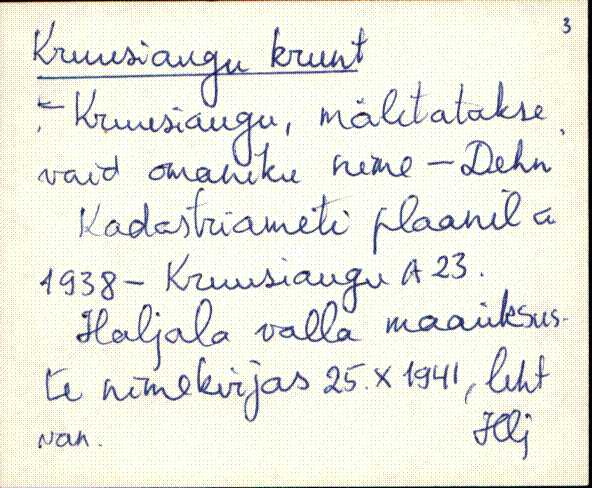 3
Kruusiaugu krunt
- Kruusiaugu, mäletatakse
vaid omaniku nime - Dehn.
Kadastriameti plaanil a
1938 - Kruusiaugu A 23.
Haljala valla maaüksus-
te nimekirjas 25. X 1941, leht
van.
Hlj